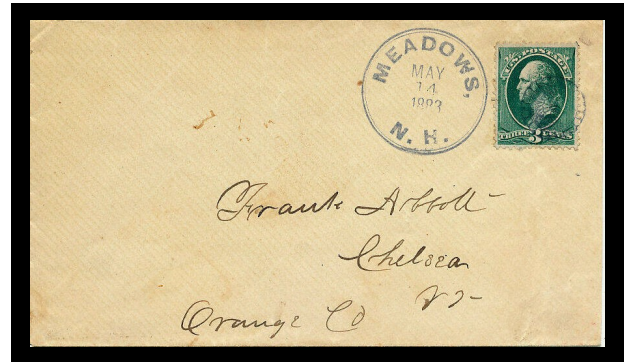 MEADOWS,
MAY
14
1883
N. H.
U.S. POSTAGE
THREE 3 CENTS
Frank Abbott
Chelsea
Vt
Orange Co